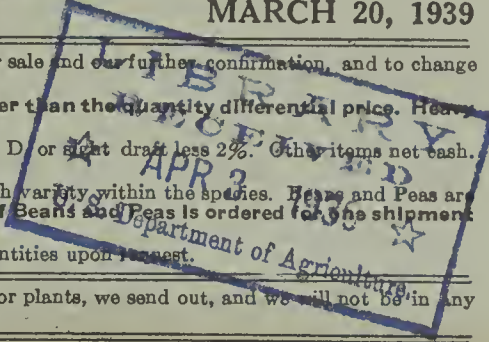 MARCH 20, 1939
sale and our further confirmation, and to change
er than the quantity differential price. Heavy
D. or sight draft less 2%. Other items net cash.
h variety within the species. Beans and Peas are
f Beans and Peas is ordered for one shipment
ntities upon request.
or plants, we send out, and we will not be in any
LIBRARY
RECEIVED
☆ APR 3 ☆
U. S. Department of Agriculture.